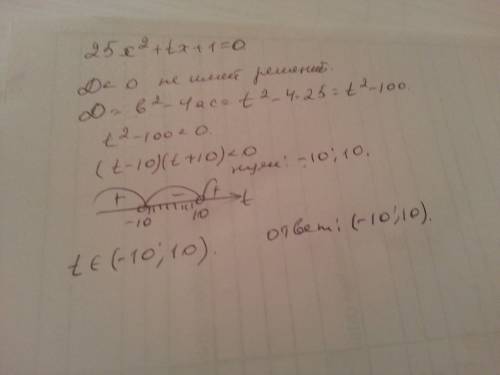 25x²+tx+1=0
D<0 не имеет решений.
D=b²-4ac=t²-4·25=t²-100.
t²-100<0.
(t-10)(t+10)<0
нули: -10; 10.
+ - +
-10 10 t
t∈(-10; 10).
ответ: (-10; 10).